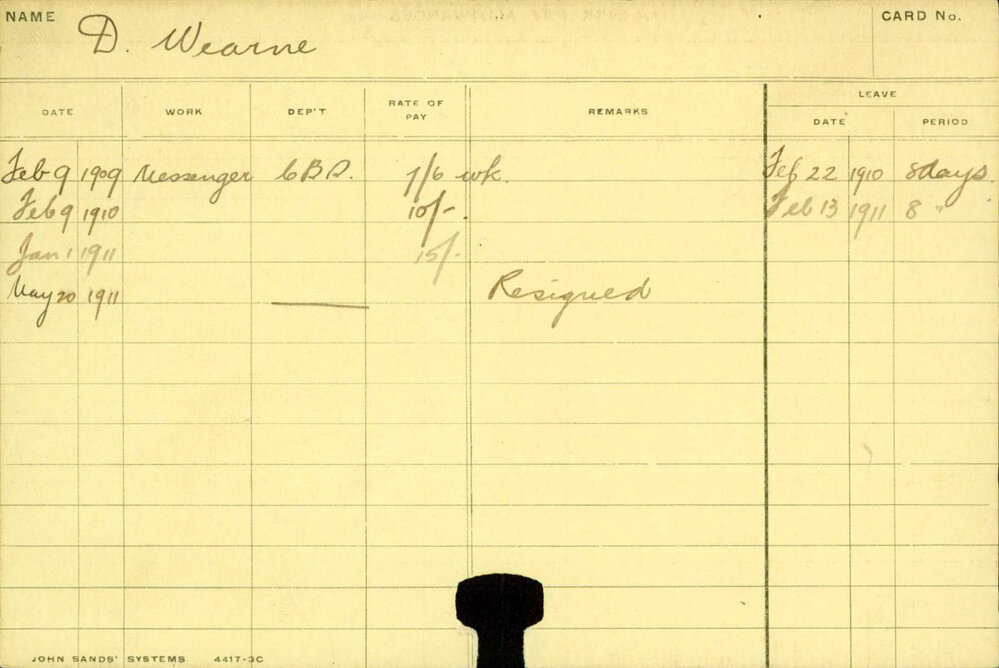 NAME D. Wearne CARD No.
LEAVE
DATE WORK DEP'T RATE OF PAY REMARKS DATE PERIOD
Feb 9 1909 Messenger 7/6 wk. Feb 22 1910 8 days.
Feb 9 1910 10/-. Feb 13 1911 8 "
Jan 1 1911 15/-
May 20 1911 Resigned
JOHN SANDS' SYSTEMS 4417-3C